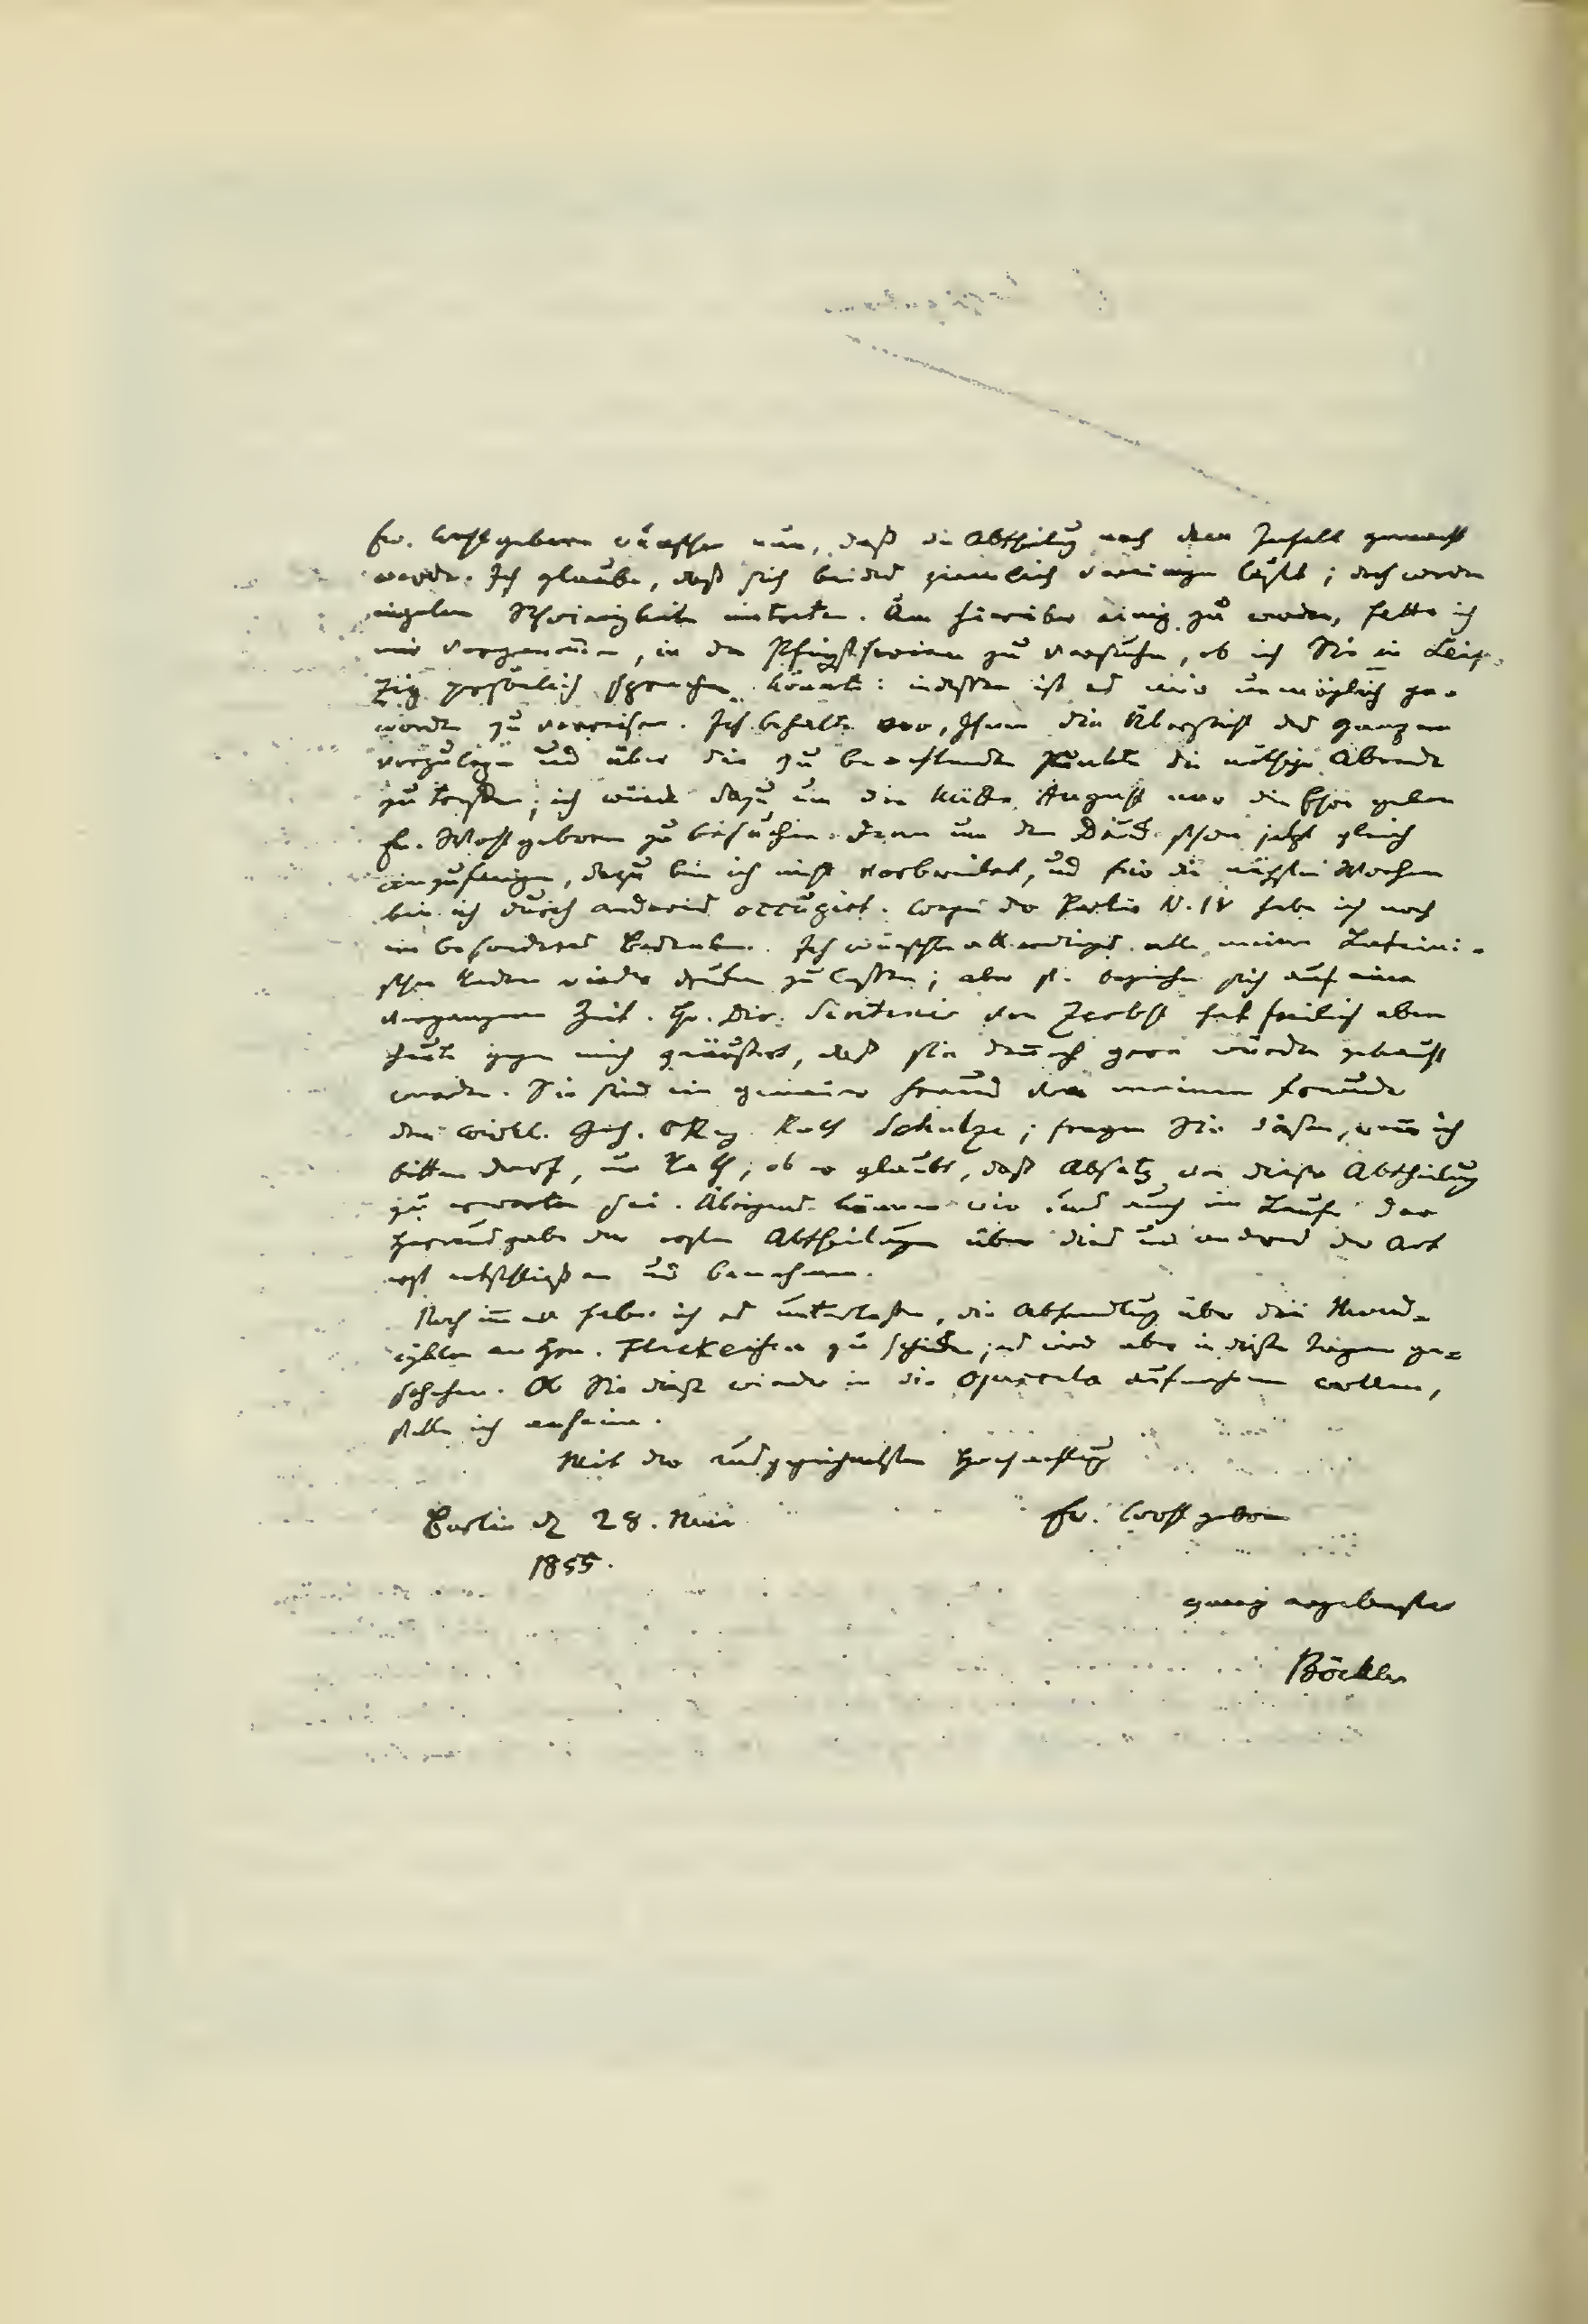 Ew. Wohlgeboren wünschen nun, daß die Abtheilung nach dem Inhalt gemacht
werde. Ich glaube, daß sich beides ziemlich vereinigen läßt; doch werden
einzelne Schwierigkeiten eintreten. Um hierüber einig zu werden, hatte ich
mir vorgenommen, in den Pfingstferien zu versuchen, ob ich Sie in Leip-
zig persönlich sprechen könnte: indessen ist es mir unmöglich ge-
worden zu verreisen. Ich behalte vor, Ihnen die Übersicht des Ganzen
vorzulegen und über die zu beachtenden Punkte die nöthige Abrede
zu treffen; ich würde dazu um die Mitte August mir die Ehre geben
Ew. Wohlgeboren zu besuchen. Denn um den Druck schon jetzt gleich
anzufangen, dazu bin ich nicht vorbereitet, und für die nächsten Wochen
bin ich durch anderes occupirt. Wegen der Partie N. IV habe ich noch
ein besonderes Bedenken. Ich wünschte allerdings alle meine Lateini-
schen Reden wieder drucken zu lassen; aber sie beziehen sich auf eine
vergangene Zeit. Hr. Dir. Sintenis von Zerbst hat freilich eben
heute gegen mich geäußert, daß sie dennoch gern würden gekauft
werden. Sie sind ein genauer Freund von meinem Freunde
dem wirkl. Geh. OReg. Rath Schulze; fragen Sie diesen, wenn ich
bitten darf, um Rath, ob er glaubt, daß Absatz von dieser Abtheilung
zu erwarten sei. Übrigens können wir uns auch im Laufe der
Herausgabe der ersten Abtheilungen über dies und anderes der Art
erst entschließen und benehmen.
Noch immer habe ich es unterlassen, die Abhandlung über die Mond-
cyklen an Hrn. Fleckeisen zu schicken; es wird aber in diesen Tagen ge-
schehen. Ob Sie diese wieder in die Opuscula aufnehmen wollen,
stelle ich anheim.
Mit der ausgezeichnetsten Hochachtung
Berlin d. 28. Mai
1855.
Ew. Wohlgeboren
ganz ergebenster
Böckh